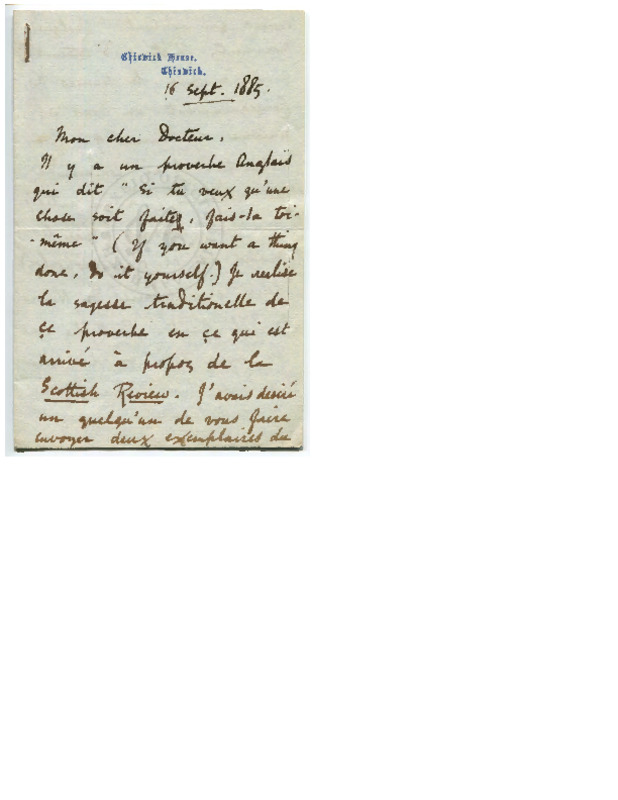 Chiswick House,
Chiswick.
16 Sept. 1885.
Mon cher Docteur,
Il y a un proverbe Anglais
qui dit "Si tu veux qu'une
chose soit faite, fais-la toi-
-même" (If you want a thing
done, do it yourself.) Je realise
la sagesse traditionelle de
çe proverbe en çe qui est
arrivé à propos de la
Scottish Review. J'avais desiré
un quelqu'un de vous faire
envoyer deux exemplaires du